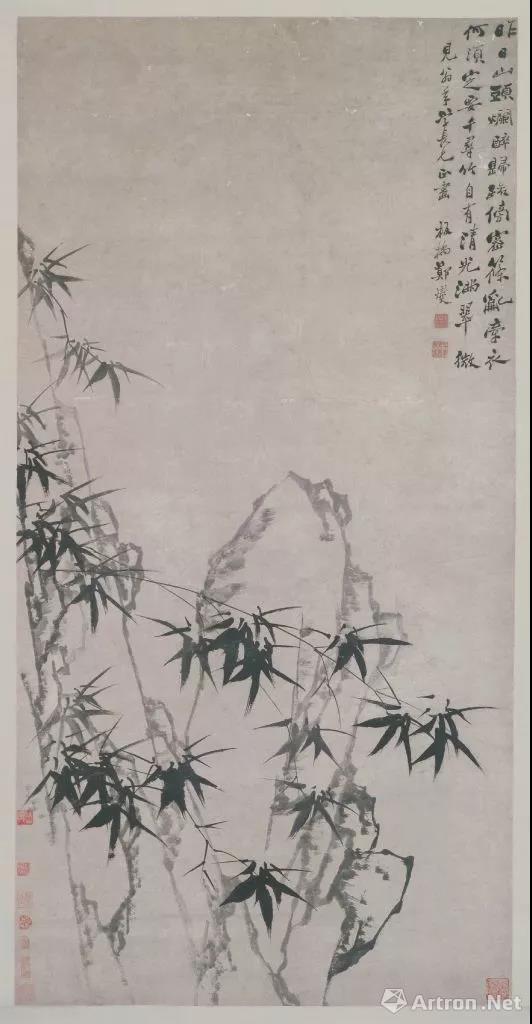 昨日山頭爛醉歸路傍密篠亂牽衣
何須定要千尋竹自有清光滿翠微
見翁年學長兄正畫 板橋鄭燮
Artron.Net